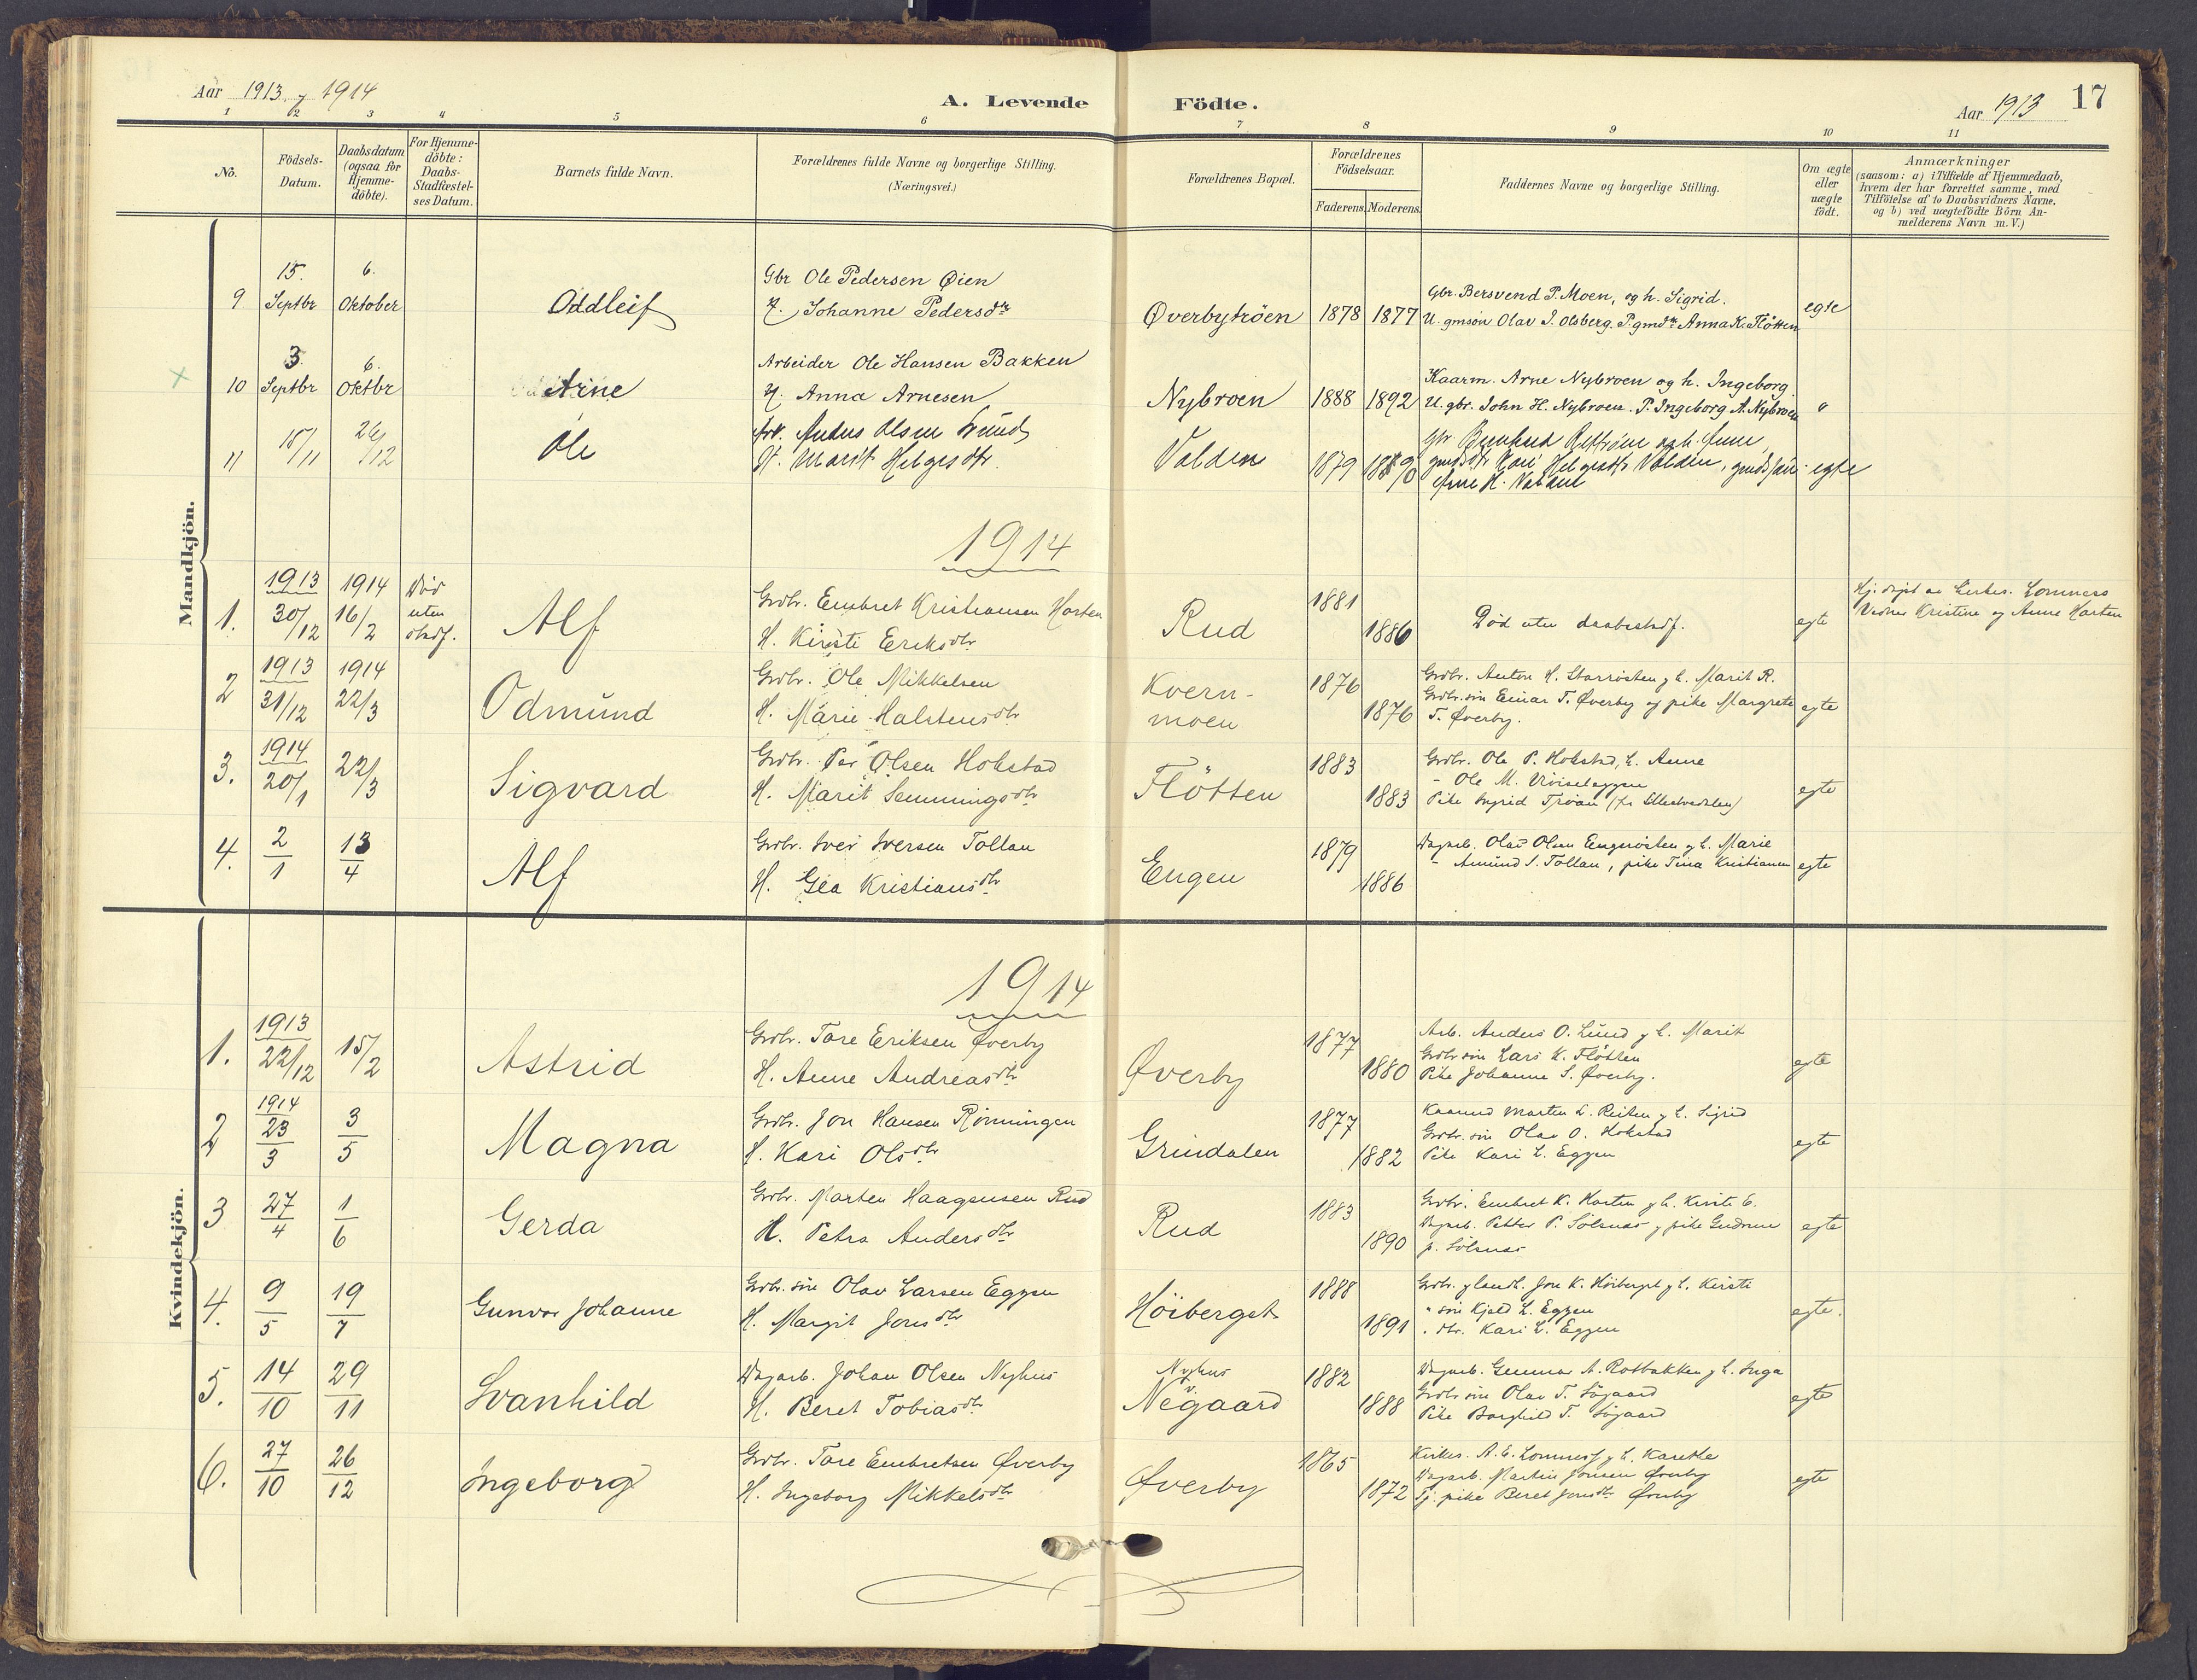 Aar 1913 og 1914
A. Levende Födte.
Aar 1913
17
1 2 3 4 5 6 7 8 9 10 11
No.
Födsels-Datum.
Daabsdatum (ogsaa for Hjemme-döbte).
For Hjemme-döbte: Daabs-Stadfæstel-ses Datum.
Barnets fulde Navn.
Forældrenes fulde Navne og borgerlige Stilling.
(Næringsvei.)
Forældrenes Bopæl.
Forældrenes Födselsaar.
Faderens. Moderens.
Faddernes Navne og borgerlige Stilling.
Om ægte eller uægte födt.
Anmærkninger
(saasom: a) i Tilfælde af Hjemmedaab,
hvem der har forrettet samme, med
Tilföielse af to Daabsvidners Navne,
og b) ved uægtefödte Börn An-
melderens Navn m. V.)
Mandkjön.
9 15. Septbr 6. Oktober Oddleif
Gbr Ole Pedersen Øien
H. Johanne Pedersdtr
Øverbytröen 1878 1877
Gbr. Bersvend P. Moen, og h. Sigrid.
U. gmsön Olav J. Olsberg. P. gmdtr Anna K. Flötten
egte
10 3. Septbr 6. Oktbr Arne
Arbeider Ole Hansen Bakken
H. Anna Arnesen
Nybroen 1888 1892
Kaarm. Arne Nybroen og h. Ingeborg.
U. gbr. John H. Nybroen. P. Ingeborg A. Nybroen
"
11 15/11 26/12 Ole
Arb. Anders Olsen Lund
H. Marit Helgesdtr.
Valden 1879 1890
Gbr. Bernhard og h. Anne
gmdsdtr Kari Helgesdtr Valden,
Arne H. Valden
egte
1914
1. 1913 30/12 1914 16/2 Död uten stadf. Alf
Grdbr. Embret Kristiansen Harten
H. Kirsti Eriksdtr
Rud 1881 1886
Död uten daabsstadf.
egte
Hj. döpt av kirkes. Lomness
Vidner Kristine og Anne Harten
2 1913 31/12 1914 22/3 Odmund
Grdbr. Ole Mikkelsen
H. Marie Halstensdtr
Kvern-
moen
1876 1876
Grdbr. Anton H. Storrösten og h. Marit R.
Grdbr.sön Einar T. Øverby og pike Margrete
T. Øverby.
egte
3. 1914 20/1 22/3 Sigvard
Grdbr. Per Olsen Hokstad
H. Marit Semmingsdtr
Flötten 1883 1883
Grdbr. Ole P. Hokstad, h. Anne
- Ole M.
Pike Ingrid Tröan
egte
4. 2/1 13/4 Alf
Grdbr. Iver Iversen Tollan
H. Gea Kristiansdtr
Engen 1879 1886
Dagarb. Olav Olsen Engrösten og h. Marie
- Amund S. Tollan, pike Tina Kristiansen
egte
Kvindekjön.
1914
1. 1913 22/12 15/2 Astrid
Grdbr. Tore Eriksen Øverby
H. Anne Andreasdtr
Øverby 1877 1880
Arb. Anders O. Lund og h. Marit
Grdbr sön Lars K. Flötten
Pike Johanne S. Øverby.
egte
2 1914 23/3 3/5 Magna
Grdbr. Jon Hansen Rönningen
H. Kari Olsdtr
Grindalen 1877 1882
Kaarmd Morten L. Reiten og h. Sigrid
Grdbr. sön Olav O. Hokstad
Pike Kari L. Eggen
egte
3 27/4 1/6 Gerda
Grdbr. Morten Haagensen Rud
H. Petra Andersdtr
Rud 1883 1890
Grdbr. Embret K. Harten og h. Kirsti E.
Dagarb. Petter P. Sölsnæs og pike Gudrun
P. Sölsnæs
egte
4. 9/5 19/7 Gunvor Johanne
Grdbr. sön Olav Larsen Eggen
H. Margit Jonsdtr
Höiberget 1888 1891
Grdbr. og landh. Jon K. Höiberget og h. Kirsti
" sön Kjeld L. Eggen
" dtr. Kari L. Eggen
egte.
5. 14/10 29/11 Svanhild
Dagarb. Johan Olsen Nyhus
H. Beret Tobiasdtr
Nyhus
v
Negaard
1882 1888
Dagarb. Gunnar A. Rotbakken og h. Inga
Grdbr sön Olav T. Sögaard
Pike Borghild T. Sögaard
egte
6. 27/10 26/12 Ingeborg
Grdbr. Tore Embretsen Øverby
H. Ingeborg Mikkelsdtr
Øverby 1865 1872
Kirkes. A. E. Lomness og h. Karethe
Dagarb. Martin Jonsen Øverby
Tj. pike Beret Jonsdtr Øverby
egte